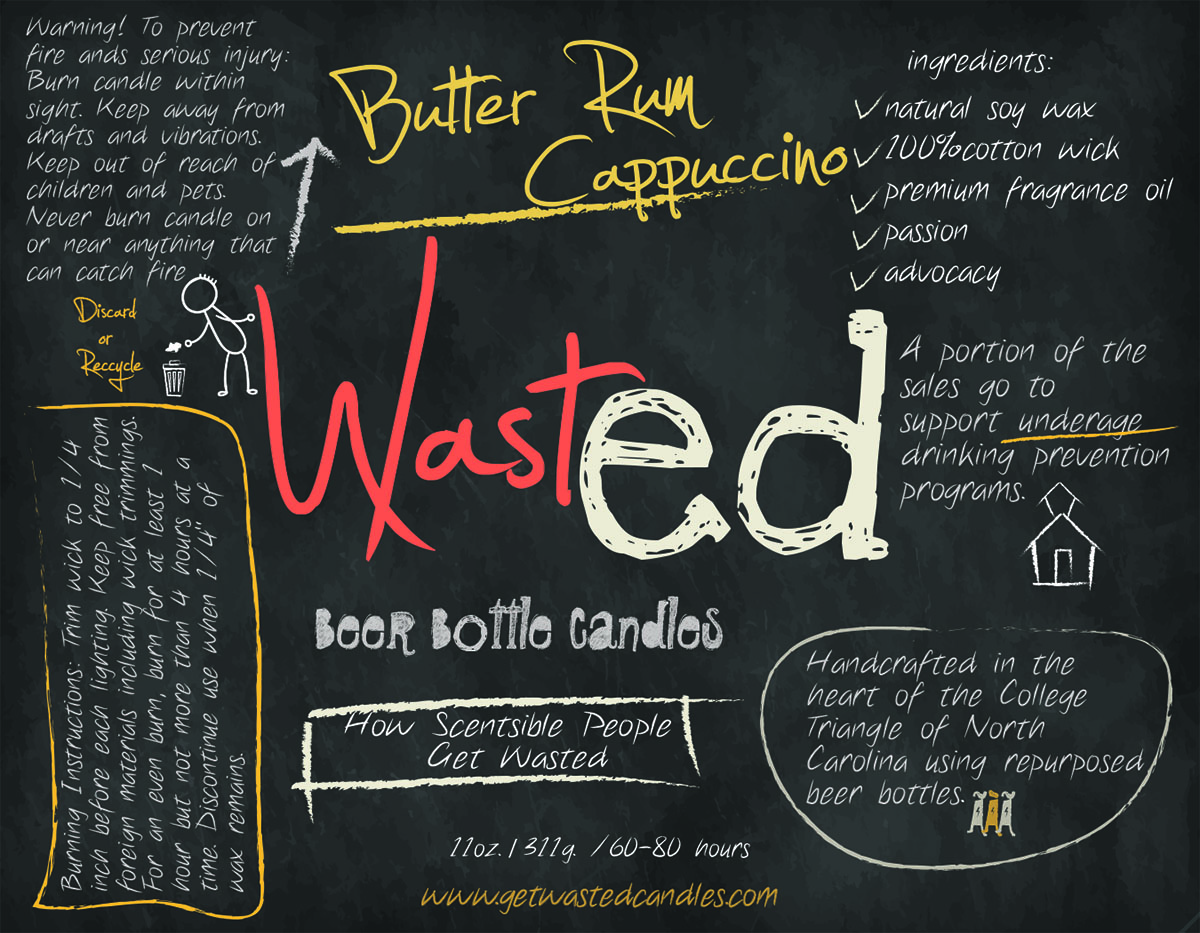 Warning! To prevent
fire ands serious injury:
Burn candle within
sight. Keep away from
drafts and vibrations.
Keep out of reach of
children and pets.
Never burn candle on
or near anything that
can catch fire
Discard
or
Reccycle
Burning Instructions: Trim wick to 1/4
inch before each lighting. Keep free from
foreign materials including wick trimmings.
For an even burn, burn for at least 1
hour but not more than 4 hours at a
time. Discontinue use when 1/4" of
wax remains.
Butter Rum
Cappuccino
Wasted
Beer Bottle Candles
How Scentsible People
Get Wasted
11oz. / 311g. / 60-80 hours
www.getwastedcandles.com
ingredients:
natural soy wax
100%cotton wick
premium fragrance oil
passion
advocacy
A portion of the
sales go to
support underage
drinking prevention
programs.
Handcrafted in the
heart of the College
Triangle of North
Carolina using repurposed
beer bottles.